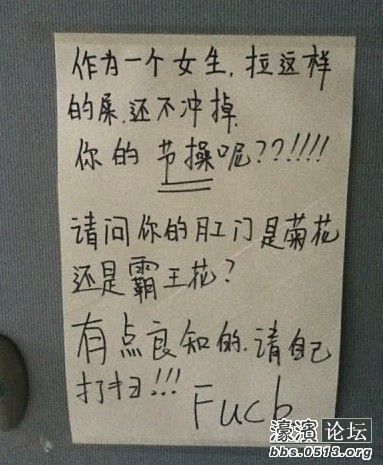 作为一个女生，拉这样
的屎，还不冲掉，
你的节操呢??!!!!
请问你的肛门是菊花
还是霸王花?
有点良知的，请自己
打扫!!!
Fuck
濠滨论坛
bbs.0513.org